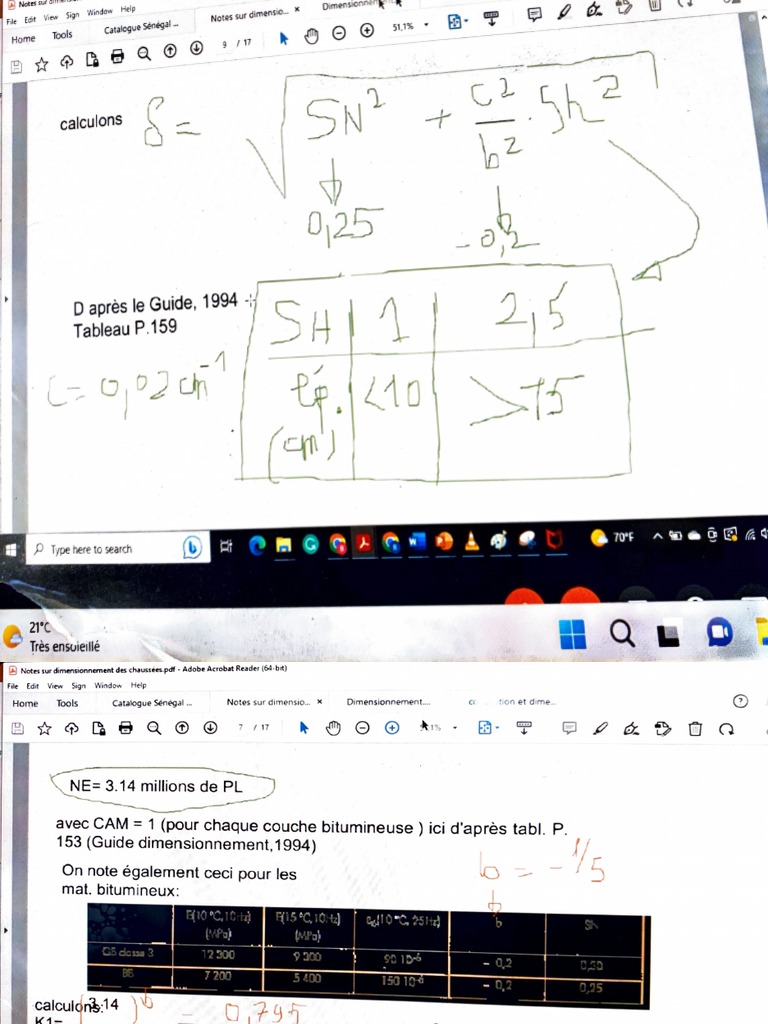 Notes sur dimensio
File Edit View Sign Window Help
Home Tools Catalogue Sénégal ... Notes sur dimensio... × Dimensionnem
9 / 17 51,1%
calculons δ = √ SN² + c²/b² · Sh²
0,25 -0,2
D après le Guide, 1994
Tableau P.159
SH 1 2,5
c = 0,02 cm⁻¹
ép. (cm) <10 >15
Type here to search 70°F
21°C
Très ensoleillé
Notes sur dimensionnement des chaussées.pdf - Adobe Acrobat Reader (64-bit)
File Edit View Sign Window Help
Home Tools Catalogue Sénégal ... Notes sur dimensio... × Dimensionnement.... tion et dime...
7 / 17
NE= 3.14 millions de PL
avec CAM = 1 (pour chaque couche bitumineuse ) ici d'après tabl. P.
153 (Guide dimensionnement,1994)
On note également ceci pour les
mat. bitumineux:
b = -1/5
E(10 °C,10Hz) (MPa) E(15 °C,10Hz) (MPa) (10 °C, 25Hz) b SN
GB classe 3 12 300 9 300 90 10⁻⁶ - 0,2 0,30
BB 7 200 5 400 150 10⁻⁶ - 0,2 0,25
calculons:
K1= (3.14)ᵇ = 0,795